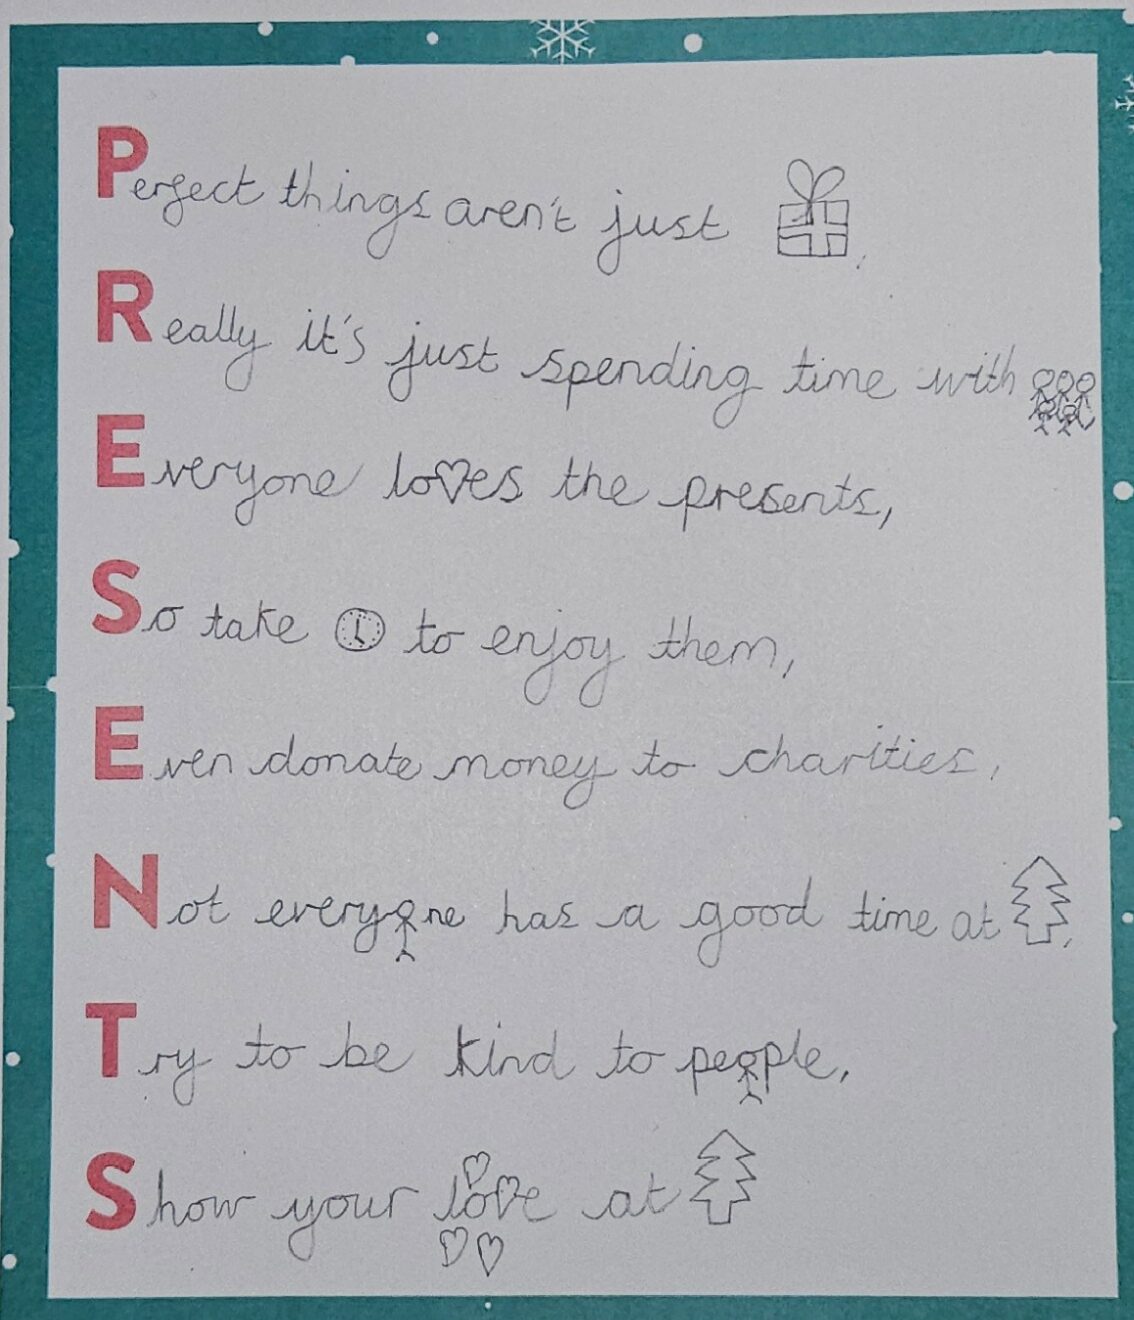 Perfect things aren't just
Really it's just spending time with
Everyone loves the presents,
So take to enjoy them,
Even donate money to charities,
Not everyone has a good time at
Try to be kind to people,
Show your love at